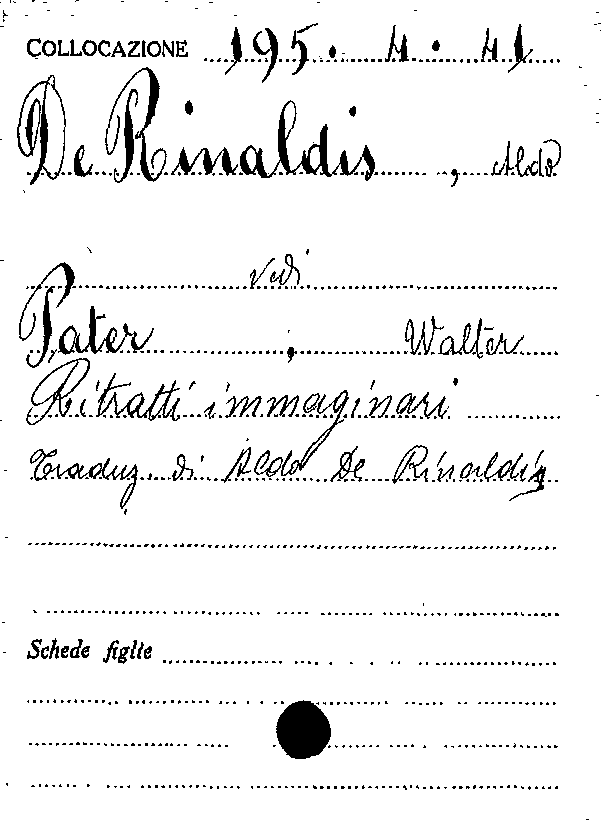 COLLOCAZIONE 195. 4. 41
De Rinaldis, Aldo
vedi
Pater, Walter
Ritratti immaginari
Traduz. di Aldo De Rinaldis
Schede figlie